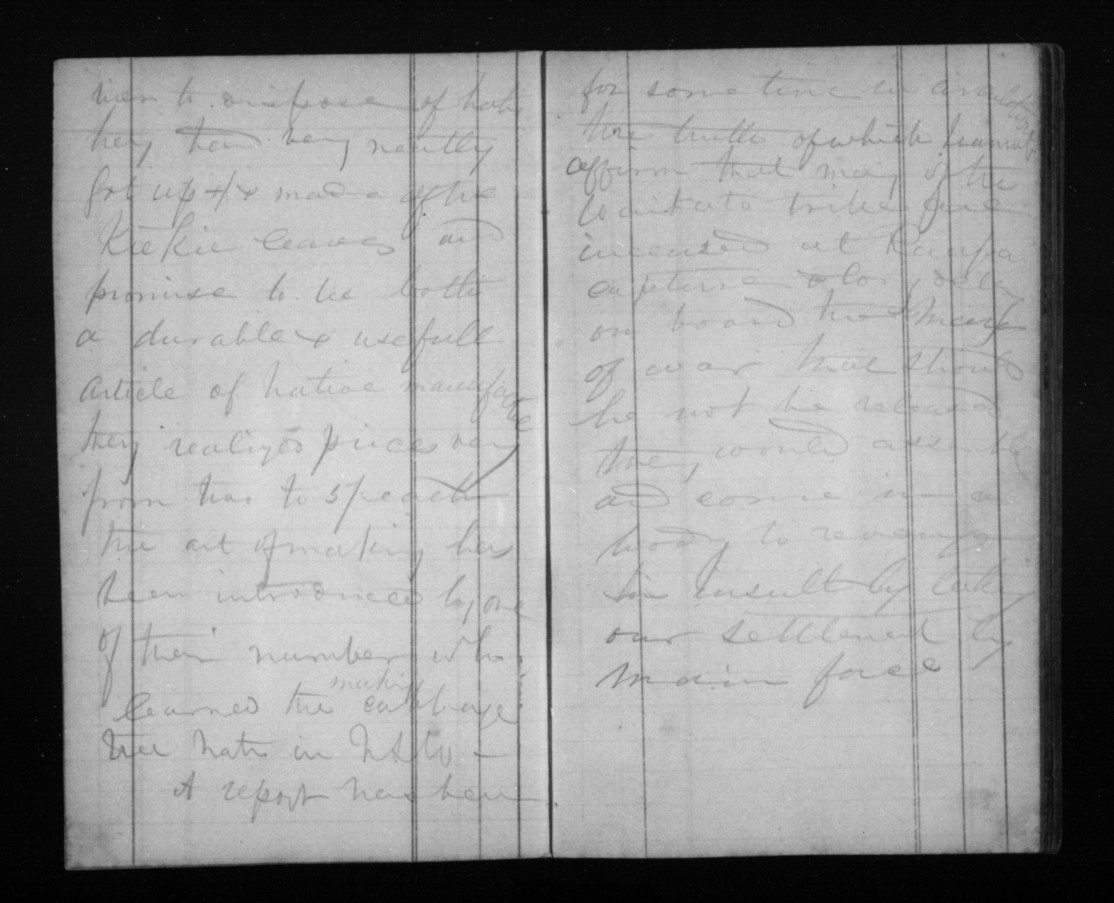 men to dispose of hats
they had very neatly
got up & made of the
Kiekie leaves and
promise to be both
a durable & usefull
article of native manufacture
they realized prices vary
from two to 5/ each
the art of making has
been introduced by one
of their number who
learned the making cabbage
tree hats in NSW -
A report has been
for some time in circulation
the truth of which I cannot
affirm that many of the
Waikato tribe are
incensed at
capture & delay
on board the Man
of war that should
he not be released
they would assemble
and come in a
body to revenge
the insult by taking
our settlement by
main force